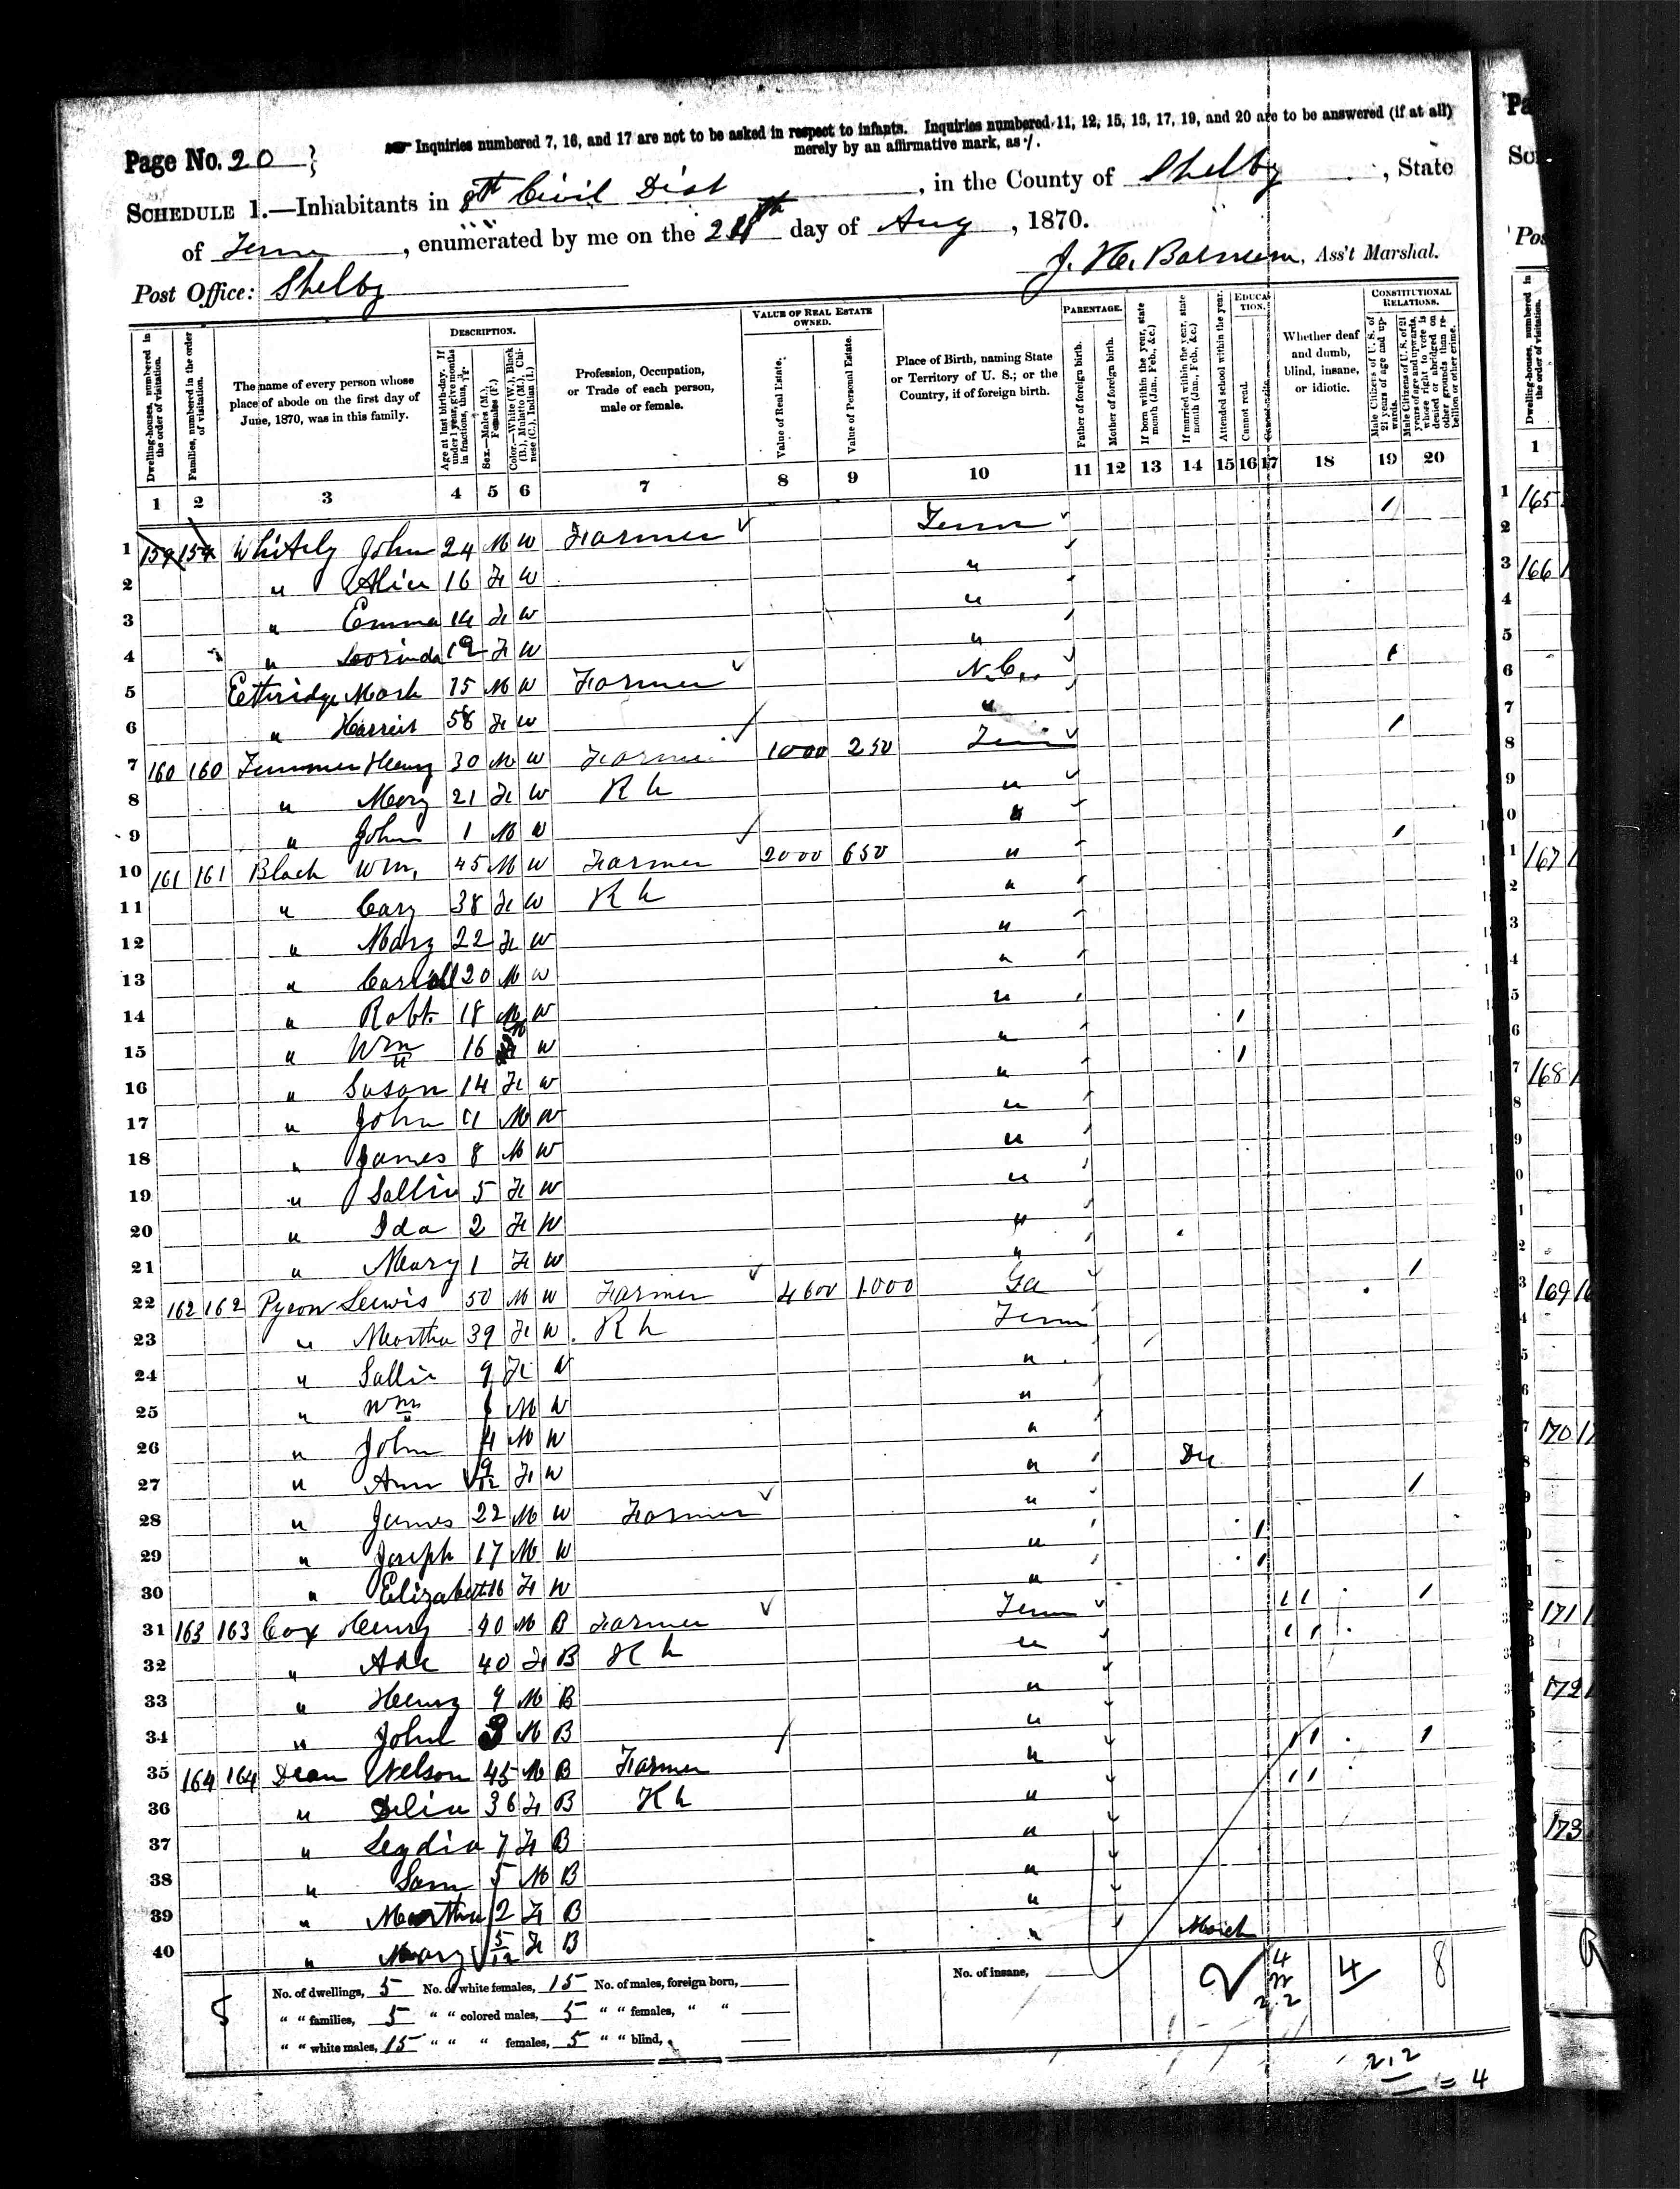 Inquiries numbered 7, 16, and 17 are not to be asked in respect to infants. Inquiries numbered 11, 12, 15, 16, 17, 19, and 20 are to be answered (if at all)
merely by an affirmative mark, as /.
Page No. 20
SCHEDULE 1.—Inhabitants in 8th Civil Dist, in the County of Shelby, State
of Tenn, enumerated by me on the day of Aug, 1870.
Post Office: Shelby
Ass't Marshal.
Dwelling-houses, numbered in the order of visitation.
Families, numbered in the order of visitation.
The name of every person whose place of abode on the first day of June, 1870, was in this family.
DESCRIPTION.
Age at last birth-day. If under 1 year, give months in fractions, thus,
Sex.—Males (M.), Females (F.)
Color.—White (W.), Black (B.), Mulatto (M.), Chinese (C.), Indian (I.)
Profession, Occupation, or Trade of each person, male or female.
VALUE OF REAL ESTATE OWNED.
Value of Real Estate.
Value of Personal Estate.
Place of Birth, naming State or Territory of U. S.; or the Country, if of foreign birth.
PARENTAGE.
Father of foreign birth.
Mother of foreign birth.
If born within the year, state month (Jan., Feb., &c.)
If married within the year, state month (Jan., Feb., &c.)
Attended school within the year.
EDUCATION.
Cannot read.
Cannot write.
Whether deaf and dumb, blind, insane, or idiotic.
CONSTITUTIONAL RELATIONS.
Male Citizens of U. S. of 21 years of age and upwards.
Male Citizens of U. S. of 21 years of age and upwards, whose right to vote is denied or abridged on other grounds than rebellion or other crime.
1 2 3 4 5 6 7 8 9 10 11 12 13 14 15 16 17 18 19 20
1 Whitely John 24 M W Farmer Tenn
2 " Alice 16 F W "
3 " Emma 14 F W "
4 " 12 F W "
5 Ethridge Mark 75 M W Farmer N.C.
6 " Harriet 58 F W "
7 160 160 Henry 30 M W Farmer 1000 250 Tenn
8 " Mary 21 F W K h "
9 " John 1 M W "
10 161 161 Black Wm. 45 M W Farmer 2000 650 "
11 " Cary 38 F W K h "
12 " Mary 22 F W "
13 " Carroll 20 M W "
14 " Robt. 18 M W "
15 " Wm 16 M W "
16 " Susan 14 F W "
17 " John M W "
18 " James 8 M W "
19 " Sallie 5 F W "
20 " Ida 2 F W "
21 " Mary 1 F W "
22 162 162 Pyron Lewis 50 M W Farmer 4600 1000 Ga
23 " Martha 39 F W K h Tenn
24 " Sallie 9 F W "
25 " Wm M W "
26 " John 4 M W "
27 " Ann 9/12 F W " Dec
28 " James 22 M W Farmer "
29 " Joseph 17 M W "
30 " Elizabeth 16 F W "
31 163 163 Cox Henry 40 M B Farmer Tenn
32 " 40 F B K h "
33 " Henry 9 M B "
34 " John 3 M B "
35 164 164 Dean Nelson 45 M B Farmer "
36 " Delia 36 F B K h "
37 " Lydia 7 F B "
38 " Sam 5 M B "
39 " Martha 2 F B "
40 " Mary 5/12 F B " March
No. of dwellings, 5 No. of white females, 15 No. of males, foreign born, No. of insane,
" " families, 5 " " colored males, 5 " " females, " "
" " white males, 15 " " " females, 5 " " blind,
5 4 8
2,2 = 4
165
166
167
168
169
170
171
172
173